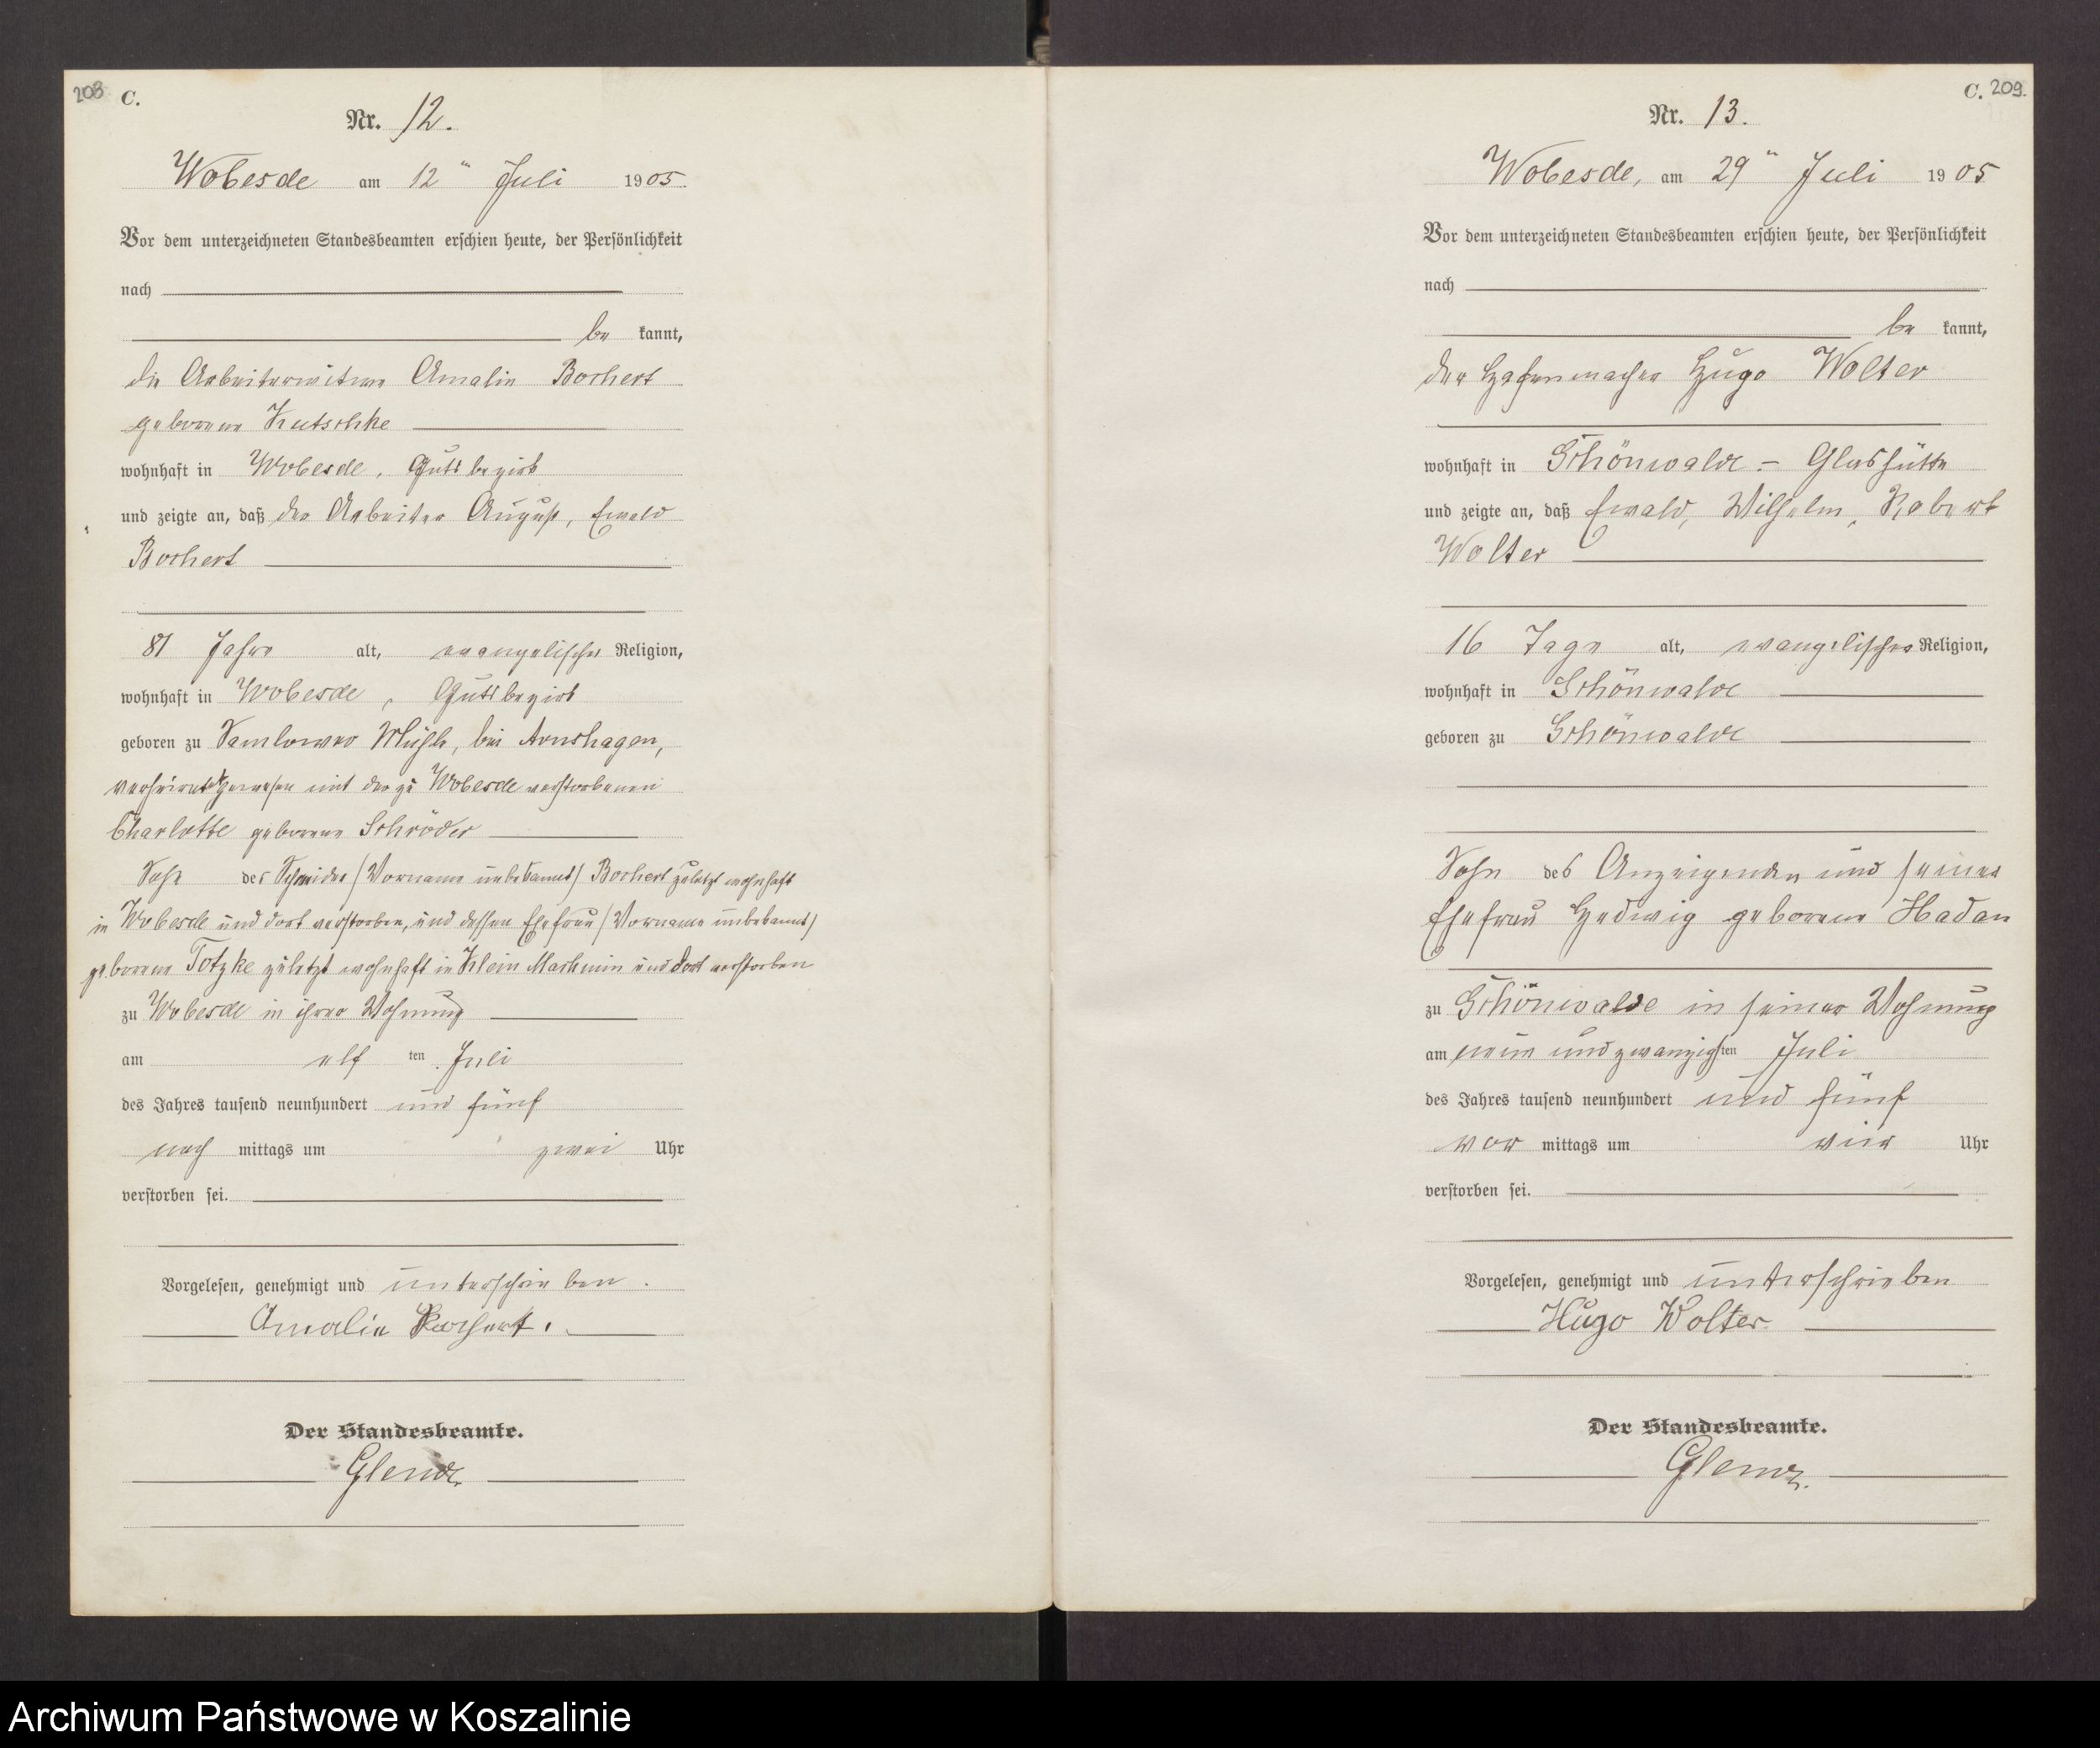 208
C.
Nr. 12.
Wobesde am 12ten Juli 1905.
Vor dem unterzeichneten Standesbeamten erschien heute, der Persönlichkeit
nach
be kannt,
die Arbeiterwitwe Amalie Borhert
geborene Kutschke
wohnhaft in Wobesde, Gutsbezirk
und zeigte an, daß der Arbeiter August, Ewald
Borhert
81 Jahre alt, evangelischer Religion,
wohnhaft in Wobesde, Gutsbezirk
geboren zu Samlower Mühle, bei Arnshagen,
verheiratet gewesen mit der zu Wobesde verstorbenen
Charlotte geborene Schröder
Sohn des Schneider (Vorname unbekannt) Borhert zuletzt wohnhaft
in Wobesde und dort verstorben, und dessen Ehefrau (Vorname unbekannt)
geborene Totzke zuletzt wohnhaft in Klein Machmin und dort verstorben
zu Wobesde in ihrer Wohnung
am elf ten Juli
des Jahres tausend neunhundert und fünf
nach mittags um zwei Uhr
verstorben sei.
Vorgelesen, genehmigt und unterschrieben.
Amalie Borhert.
Der Standesbeamte.
C. 209.
Nr. 13.
Wobesde, am 29ten Juli 1905
Vor dem unterzeichneten Standesbeamten erschien heute, der Persönlichkeit
nach
be kannt,
der Hafenmacher Hugo Wolter
wohnhaft in Schönwalde - Glashütte
und zeigte an, daß Ewald, Wilhelm, Robert
Wolter
16 Tage alt, evangelischer Religion,
wohnhaft in Schönwalde
geboren zu Schönwalde
Sohn des Anzeigenden und seiner
Ehefrau Hedwig geborene Hadan
zu Schönwalde in seiner Wohnung
am neun und zwanzigsten Juli
des Jahres tausend neunhundert und fünf
vor mittags um vier Uhr
verstorben sei.
Vorgelesen, genehmigt und unterschrieben
Hugo Wolter
Der Standesbeamte.
Archiwum Państwowe w Koszalinie